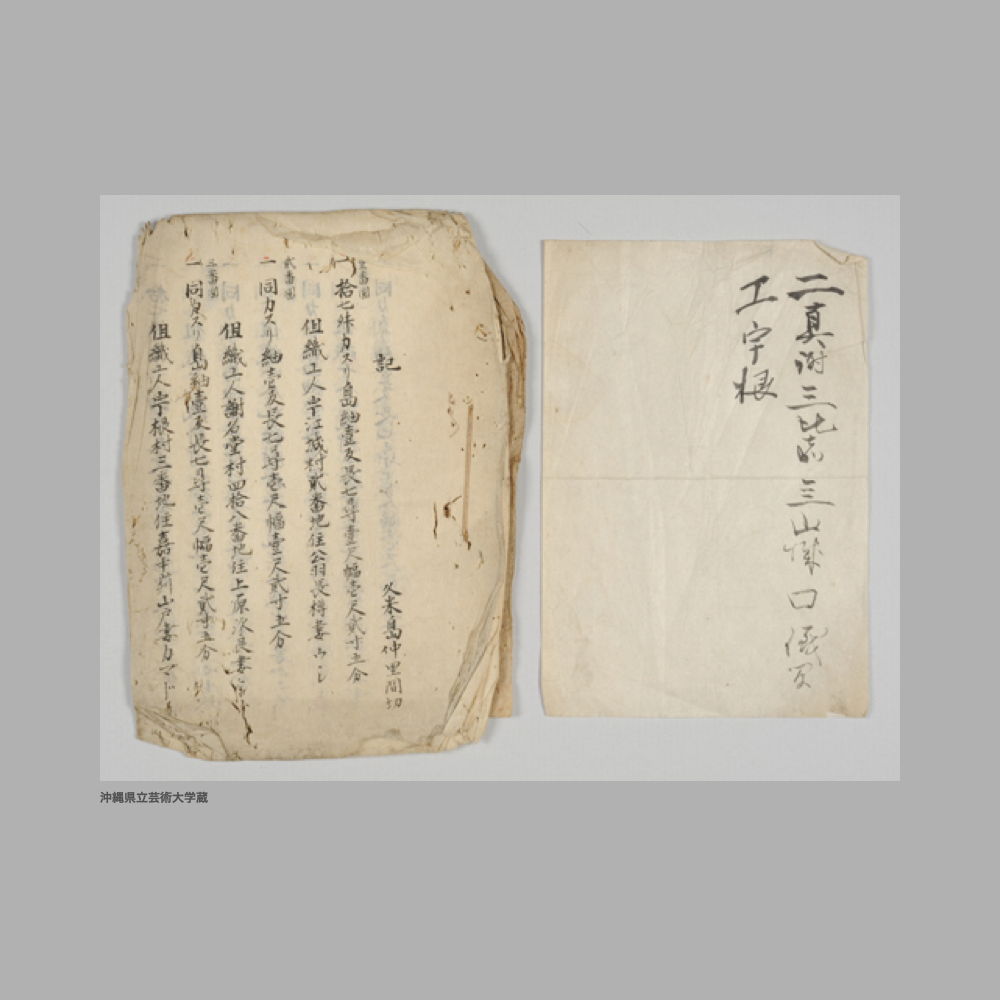 二真謝三比嘉三山城口儀間
工宇根
記
久米島仲里間切
壱番図
一拾七舛カスリ島紬壹反長七尋壹尺幅壱尺貳寸五分
但織工人宇江城村貳番地住
貳番図
一同カスリ紬壱反長七尋壱尺幅壹尺貳寸五分
但織工人謝名堂村四拾八番地住上原
三番図
一同カスリ島紬壹反長七尋壱尺幅壱尺貳寸五分
但織工人宇根村三番地住嘉手苅山戸妻カマド
沖縄県立芸術大学蔵